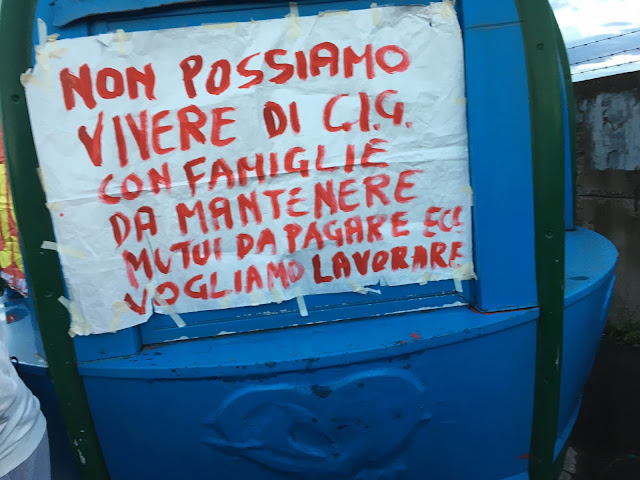 NON POSSIAMO
VIVERE DI C.I.G.
CON FAMIGLIE
DA MANTENERE
MUTUI DA PAGARE ECC
VOGLIAMO LAVORARE